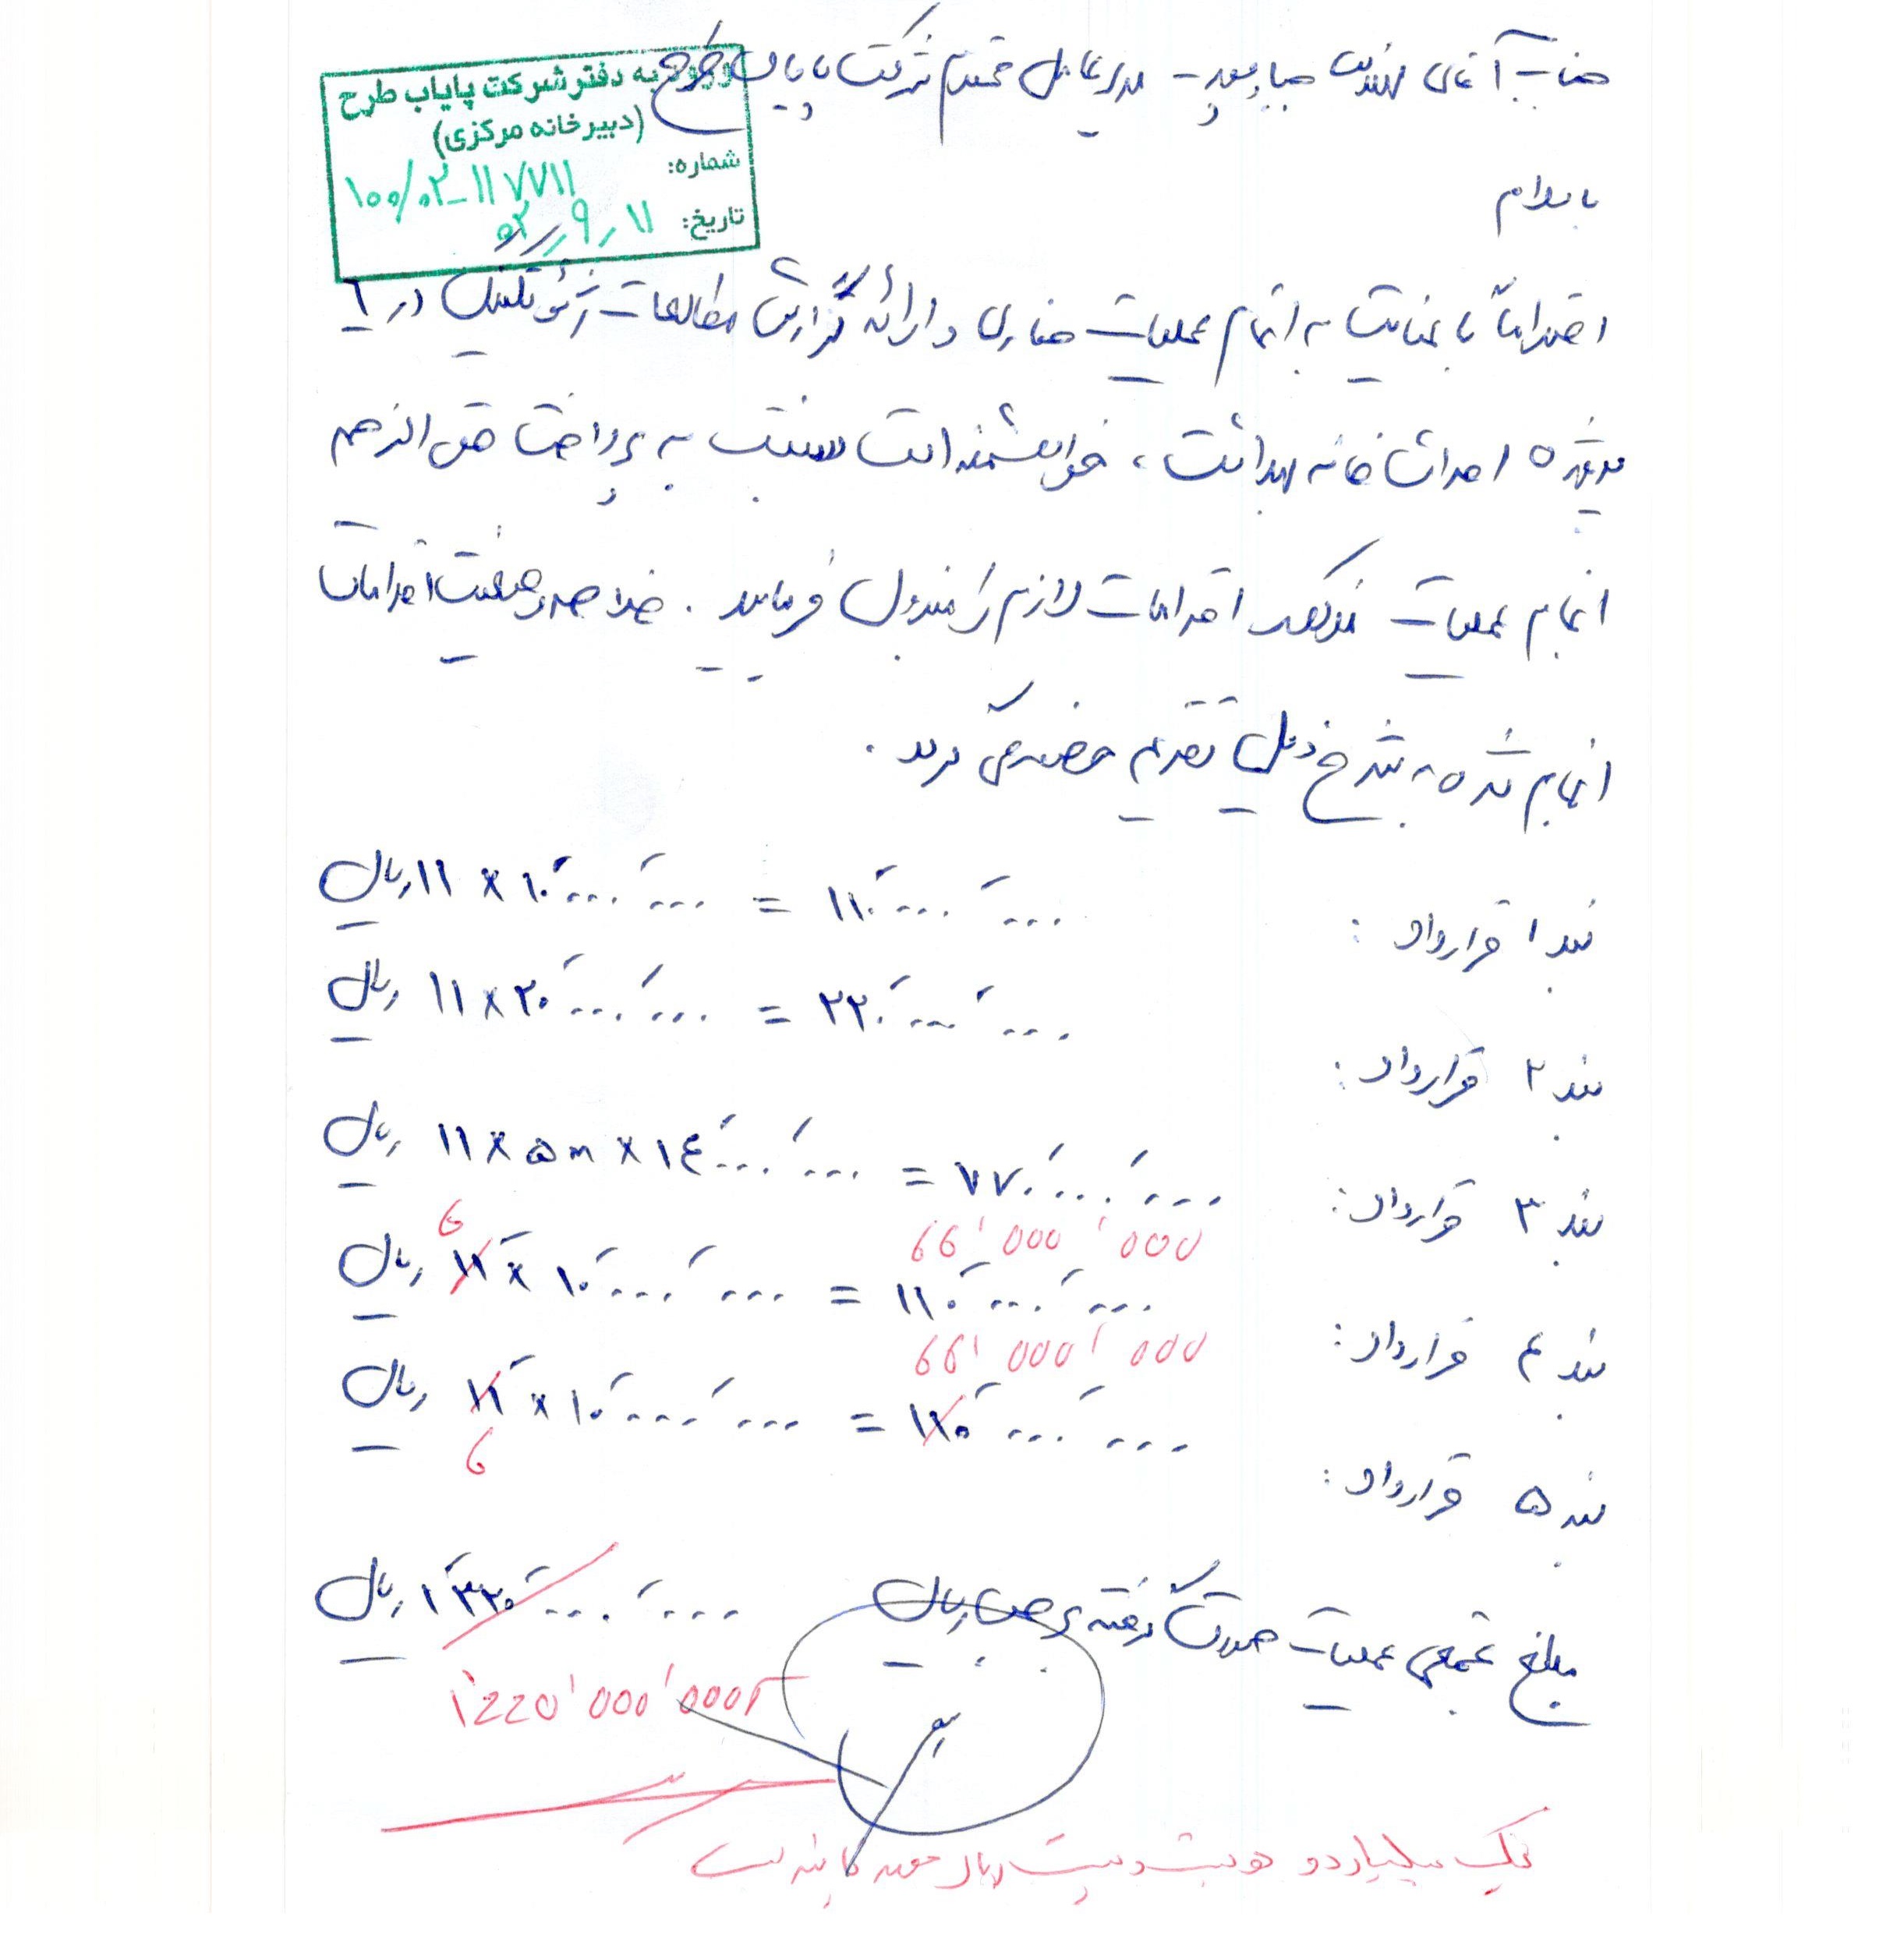 جناب آقای مهندس صیادپور - مدیرعامل محترم شرکت پایاب طرح
ورود به دفتر شرکت پایاب طرح
(دبیرخانه مرکزی)
شماره: ۱۰۰/۰۲-۱۱۷۷۱۱
تاریخ: ۱۱ ر ۹ ر ۰۲
با سلام
احتراماً با عنایت به اتمام عملیات حفاری و ارائه گزارش مطالعات ژئوتکنیک در ۶
پروژه احداث خانه بهداشت، خواهشمند است نسبت به پرداخت حق الزحمه
انجام عملیات مذکور اقدامات لازم را مبذول فرمایید. خلاصه وضعیت اقدامات
انجام شده به شرح ذیل تقدیم حضور می گردد.
بند ۱ قرارداد: ۱۱ × ۱۰٬۰۰۰٬۰۰۰ = ۱۱۰٬۰۰۰٬۰۰۰ ریال
بند ۲ قرارداد: ۱۱ × ۲۰٬۰۰۰٬۰۰۰ = ۲۲۰٬۰۰۰٬۰۰۰ ریال
بند ۳ قرارداد: ۱۱ × ۵m × ۱۴٬۰۰۰٬۰۰۰ = ۷۷۰٬۰۰۰٬۰۰۰ ریال
6 66'000'000
بند ۴ قرارداد: ۱۱ × ۱۰٬۰۰۰٬۰۰۰ = ۱۱۰٬۰۰۰٬۰۰۰ ریال
66'000'000
بند ۵ قرارداد: ۱۱ × ۱۰٬۰۰۰٬۰۰۰ = ۱۱۰٬۰۰۰٬۰۰۰ ریال
6
مبلغ تجمعی عملیات صورت گرفته برحسب ریال ۱٬۳۲۰٬۰۰۰٬۰۰۰ ریال
1'220'000'000
یک میلیارد و دویست و بیست ریال مورد تایید است